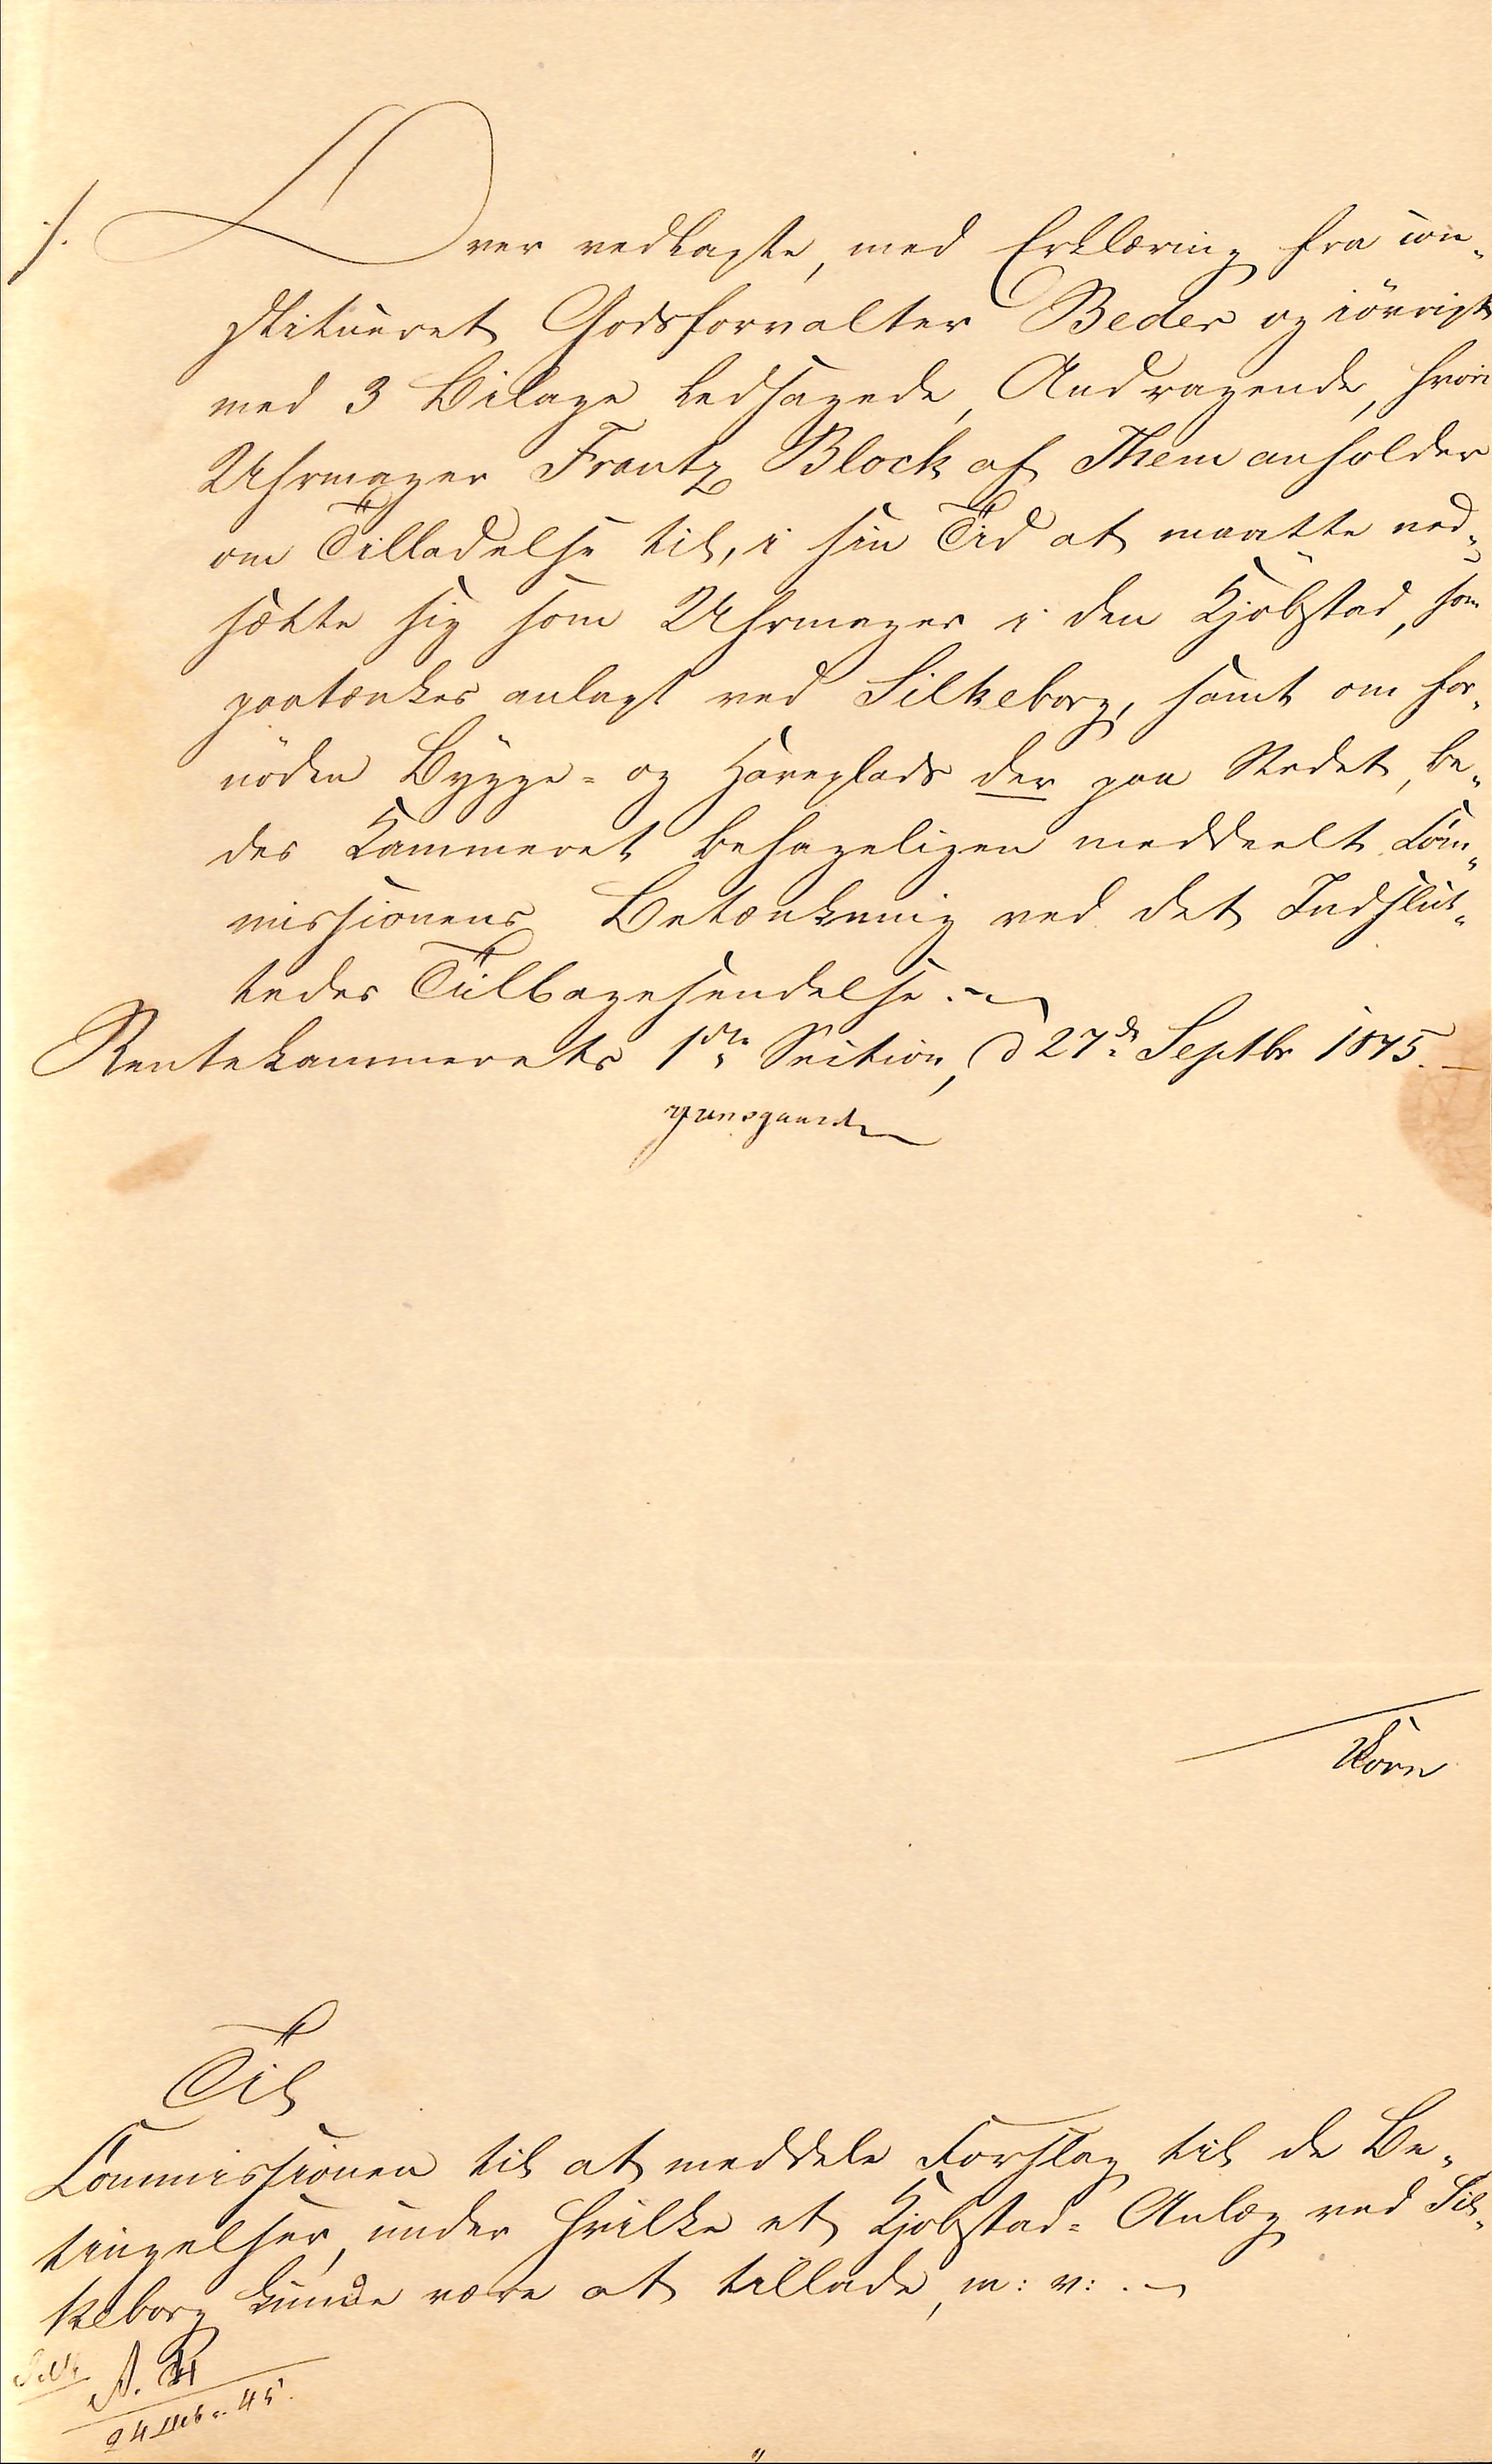 ./. Over vedlagte, med Erklæring fra con-
stitueret Godsforvalter Beder og iövrigt
med 3 Bilage ledsagede, Andragende, hvori
Uhrmager Frantz Block af Them anholder
om Tilladelse til, i sin Tid at maatte ned-
sætte sig som Uhrmager i den Kjöbstad, som
paatænkes anlagt ved Silkeborg, samt om for-
nöden Bygge- og Haveplads der paa Stedet, be-
des Kammeret behageligen meddeelt Com-
missionens Betænkning ved det Indslut-
tedes Tilbagesendelse.
Rentekammerets 1ste Section, d 27de Septbr 1845.
Til
Commissionen til at meddele Forslag til de Be-
tingelser, under hvilke et Kjöbstad-Anlæg ved Sil-
keborg kunde være at tillade, m: v:.